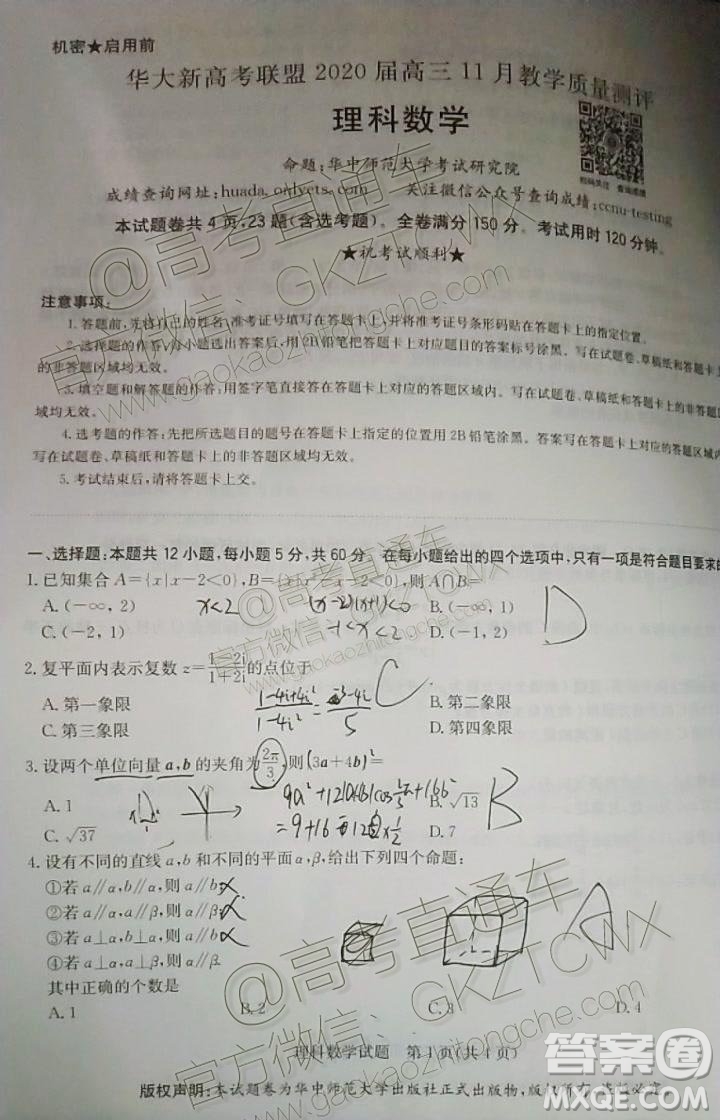 机密★启用前
华大新高考联盟 2020 届高三 11 月教学质量测评
理科数学
命题:华中师范大学考试研究院
扫码关注 查询成绩
成绩查询网址:huada.onlyets.com 关注微信公众号查询成绩:ccnu-testing
本试题卷共 4 页,23 题(含选考题)。全卷满分 150 分。考试用时 120 分钟。
★祝考试顺利★
注意事项:
1.答题前,先将自己的姓名、准考证号填写在答题卡上,并将准考证号条形码贴在答题卡上的指定位置。
2.选择题的作答:每小题选出答案后,用 2B 铅笔把答题卡上对应题目的答案标号涂黑。写在试题卷、草稿纸和答题卡上
的非答题区域均无效。
3.填空题和解答题的作答:用签字笔直接答在答题卡上对应的答题区域内。写在试题卷、草稿纸和答题卡上的非答题区
域均无效。
4.选考题的作答:先把所选题目的题号在答题卡上指定的位置用 2B 铅笔涂黑。答案写在答题卡上对应的答题区域内,
写在试题卷、草稿纸和答题卡上的非答题区域均无效。
5.考试结束后,请将答题卡上交。
一、选择题:本题共 12 小题,每小题 5 分,共 60 分。在每小题给出的四个选项中,只有一项是符合题目要求的
1.已知集合 A={x|x-2<0},B={x|x²-x-2<0},则 A∩B=
A.(-∞,2) x<2 (x-2)(x+1)<0 B.(-∞,1) D
C.(-2,1) -1<x<2 D.(-1,2)
2.复平面内表示复数 z=(1-2i)/(1+2i) 的点位于 C
A.第一象限 (1-4i+4i²)/(1-4i²)=(-3-4i)/5 B.第二象限
C.第三象限 D.第四象限
3.设两个单位向量 a,b 的夹角为 2π/3,则(3a+4b)²=
A.1 B.√13 B
C.√37 =9+16 D.7
4.设有不同的直线 a,b 和不同的平面 α,β,给出下列四个命题:
①若 a∥α,b∥α,则 a∥b
②若 a∥α,a∥β,则 α∥β
③若 a⊥α,b⊥α,则 a∥b
④若 a⊥α,a⊥β,则 α∥β
其中正确的个数是
A.1 B.2 C.3 D.4
理科数学试题 第 1 页(共 4 页)
版权声明:本试题卷为华中师范大学出版社正式出版物,版权所有,盗版必究。
@高考直通车
官方微信:GKZTCWX
www.gaokaozhitongche.com
@高考直通车
官方微信:GKZTCWX
www.gaokaozhitongche.com
@高考直通车
官方微信:GKZTCWX
www.gaokaozhitongche.com
答案圈
MXQE.COM